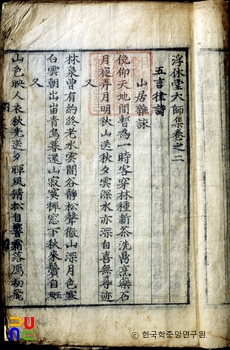 浮休堂大師集卷之二
五言律詩
山居雜詠
俛仰天地間暫爲一時客穿林種新茶洗鼎烹藥石
月夜弄月明秋山送秋夕雲深水亦深自喜無尋迹
又
林泉曾有約終老水雲間谷靜松聲徹山深月色寒
白雲朝出岫靑鳥暮還山寂寞輝窓下秋來鬢自
又
山色映人衣秋光送夕暉風
ⓒ한국학중앙연구원